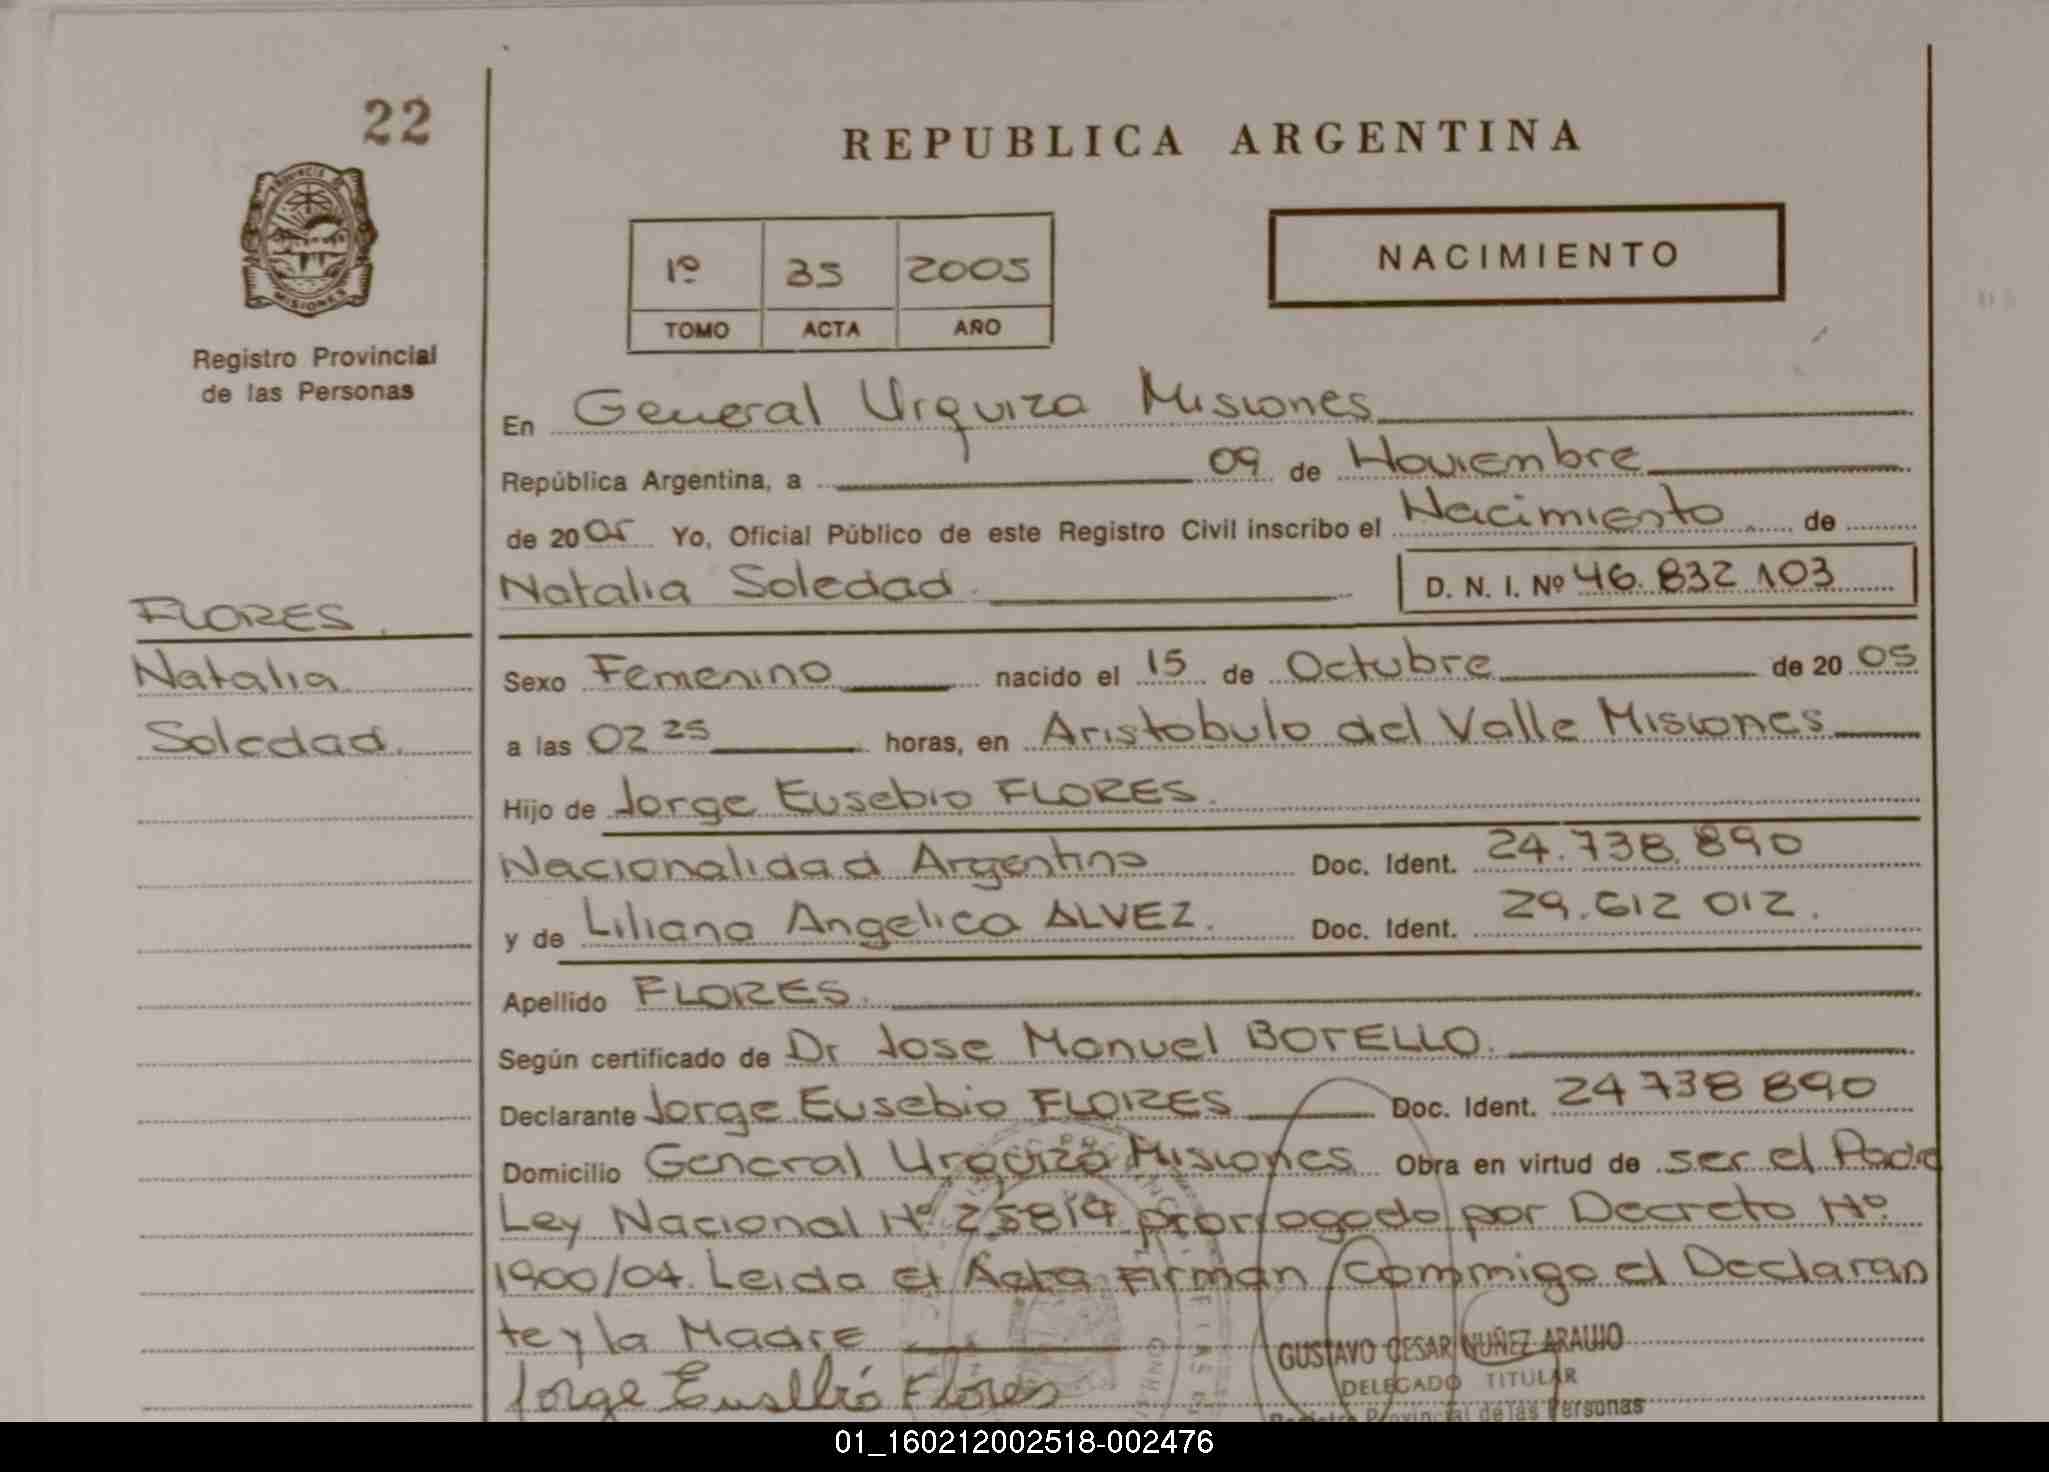 22
REPUBLICA ARGENTINA
PROVINCIA DE
MISIONES
Registro Provincial
de las Personas
1º 35 2005
TOMO ACTA AÑO
NACIMIENTO
En General Urquiza Misiones
República Argentina, a 09 de Noviembre
de 2005 Yo, Oficial Público de este Registro Civil inscribo el Nacimiento de
Natalia Soledad D. N. I. Nº 46.832.103
FLORES
Natalia
Soledad.
Sexo Femenino nacido el 15 de Octubre de 2005
a las 02 25 horas, en Aristobulo del Valle Misiones
Hijo de Jorge Eusebio FLORES.
Nacionalidad Argentino Doc. Ident. 24.738.890
y de Liliana Angelica ALVEZ. Doc. Ident. 29.612 012.
Apellido FLORES.
Según certificado de Dr Jose Manuel BOTELLO.
Declarante Jorge Eusebio FLORES Doc. Ident. 24 738 890
Domicilio General Urquiza Misiones Obra en virtud de ser el Padre
Ley Nacional Nº 25819 prorrogado por Decreto Nº
1900/04. Leida el Acta Firman conmigo el Declaran
te y la Madre
Jorge Eusebio Flores
GUSTAVO CESAR NUÑEZ ARAUJO
DELEGADO TITULAR
Registro Provincial de las Personas
01_160212002518-002476